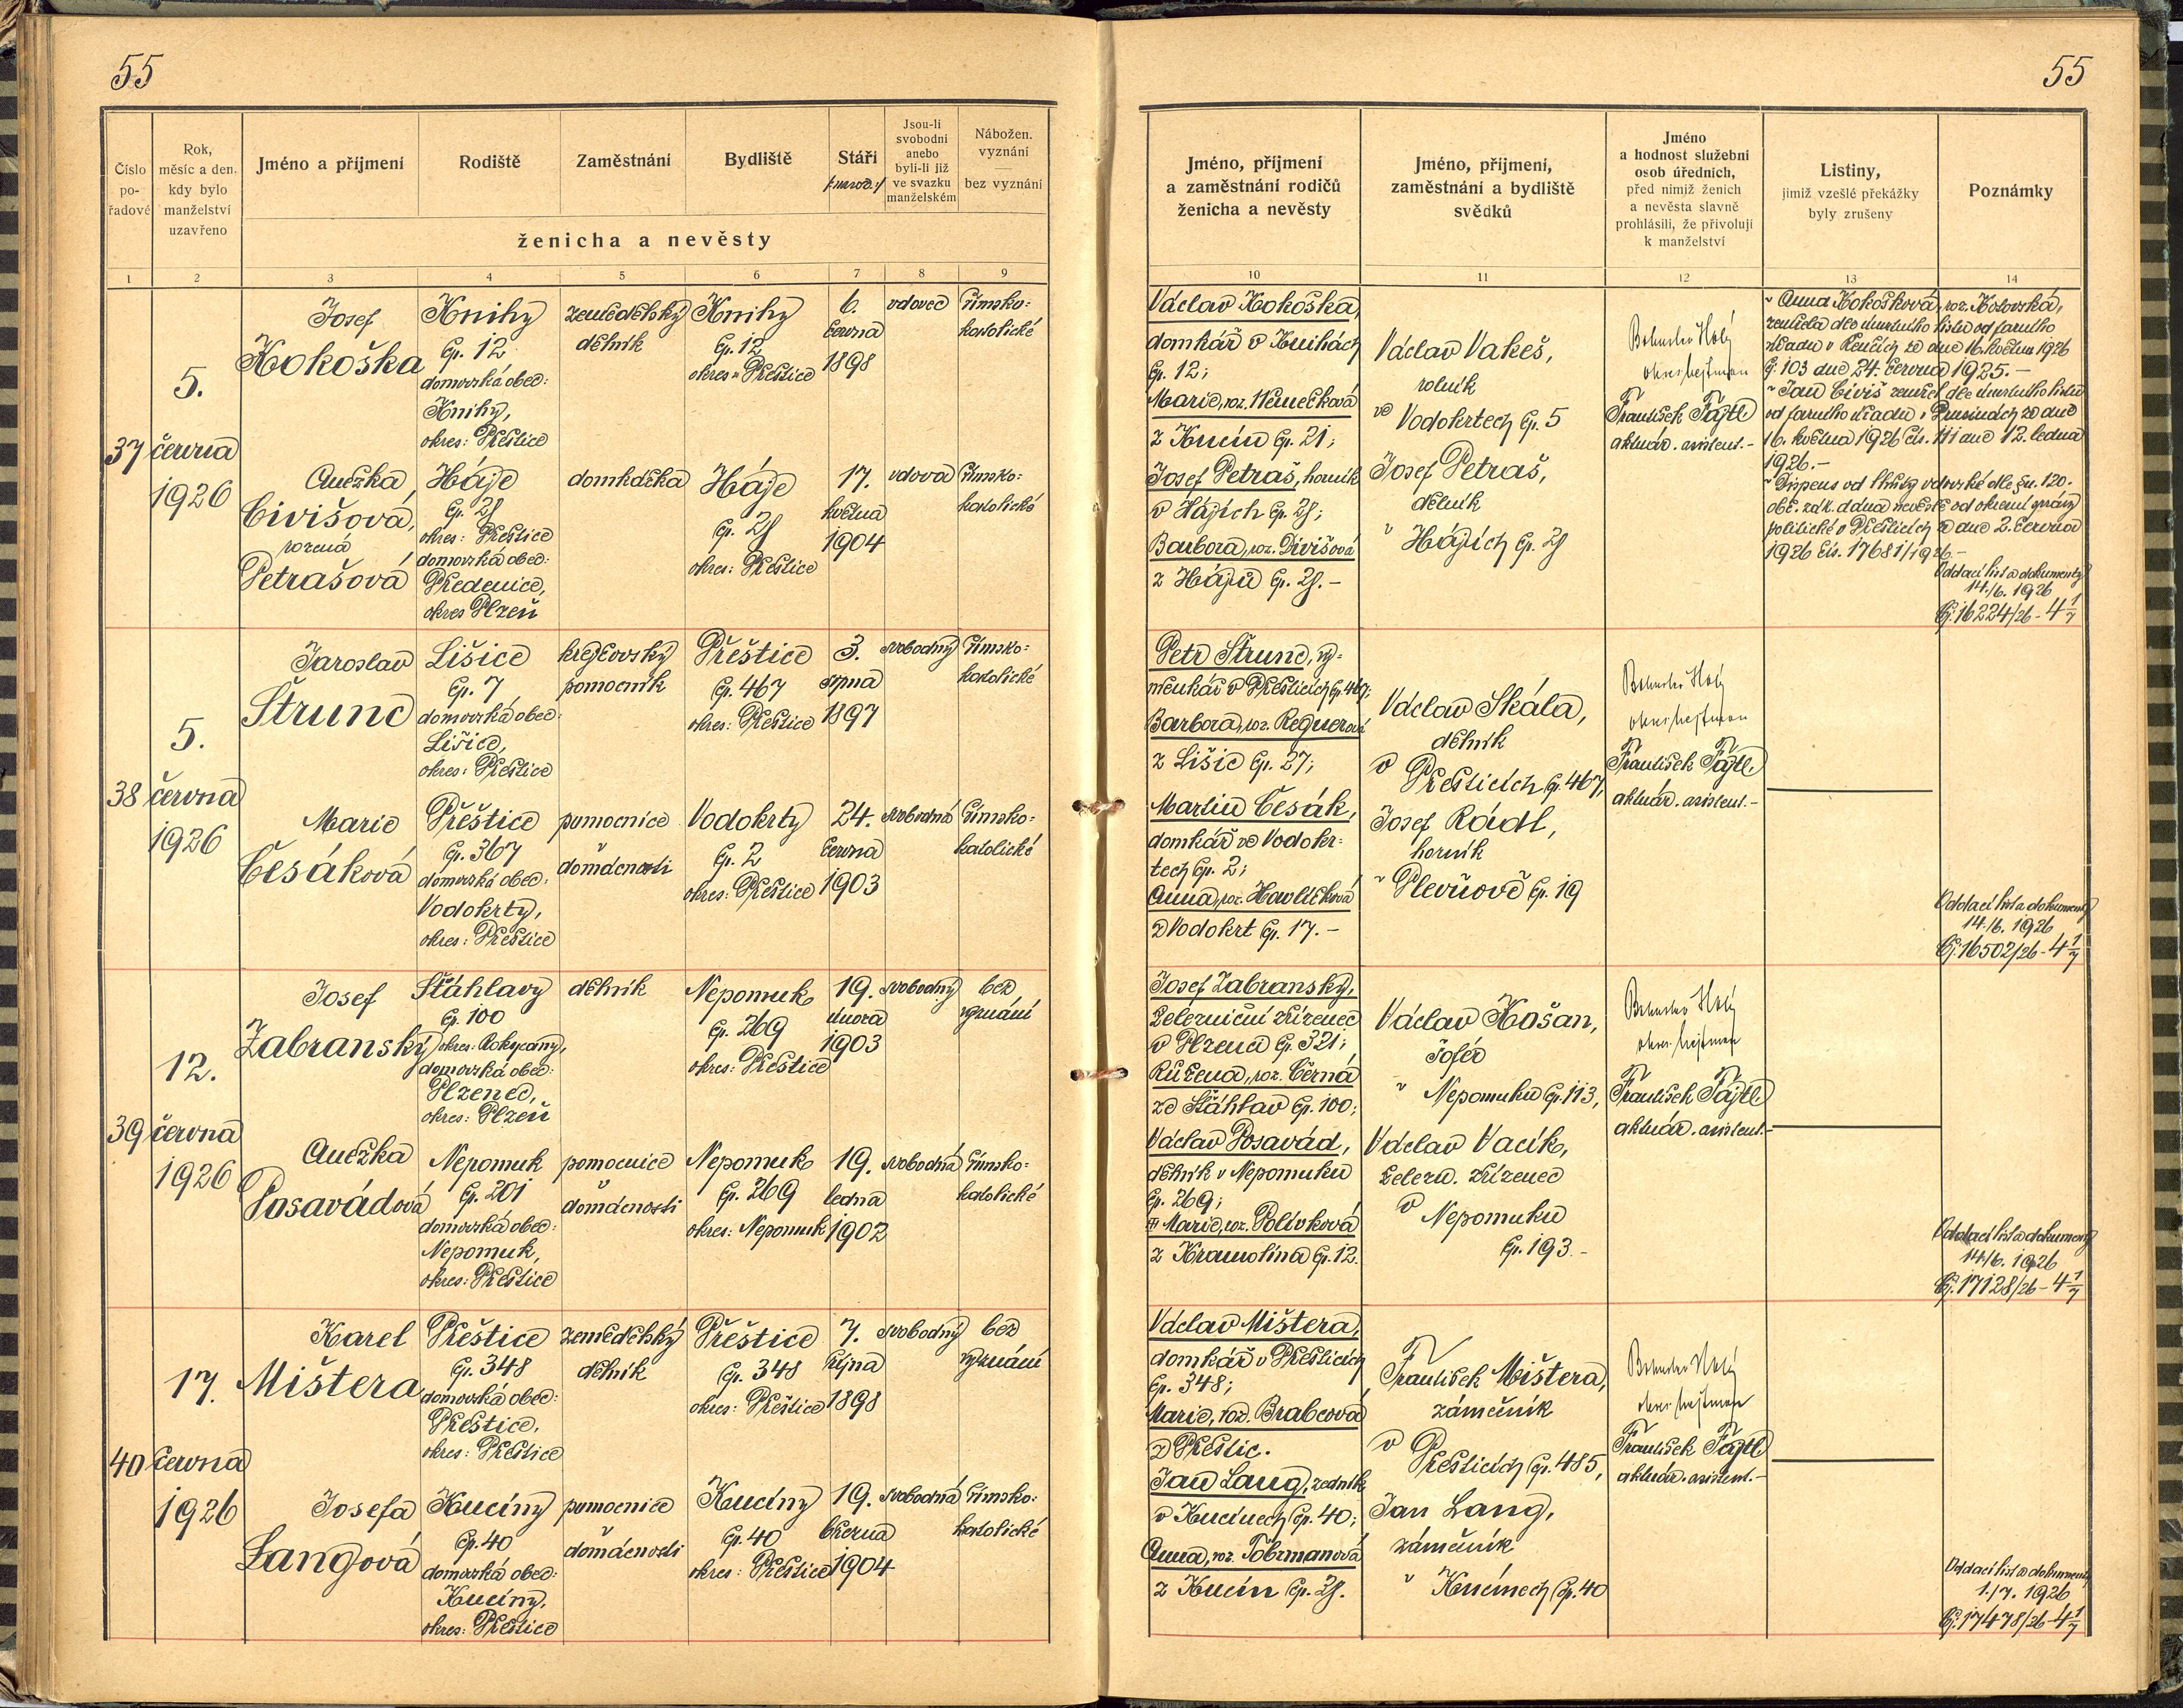 55
Číslo
po-
řadové
Rok,
měsíc a den,
kdy bylo
manželství
uzavřeno
Jméno a příjmení
Rodiště
Zaměstnání
Bydliště
Stáří
/:naroz.:/
Jsou-li
svobodni
anebo
byli-li již
ve svazku
manželském
Nábožen.
vyznání
—
bez vyznání
ženicha a nevěsty
1 2 3 4 5 6 7 8 9
37
5.
června
1926
Josef
Kokoška
Knihy
čp. 12
domovská obec:
Knihy,
okres: Přeštice
zemědělský
dělník
Knihy
čp. 12
okres: Přeštice
6.
června
1898
vdovec
římsko-
katolické
Anežka
Civišová,
rozená
Petrašová
Háje
čp. 28
okres: Přeštice
domovská obec:
Předenice,
okres Plzeň
domkářka
Háje
čp. 28
okres: Přeštice
17.
května
1904
vdova
římsko-
katolické
38
5.
června
1926
Jaroslav
Štrunc
Lišice
čp. 7
domovská obec:
Lišice,
okres: Přeštice
krejčovský
pomocník
Přeštice
čp. 467
okres: Přeštice
3.
srpna
1897
svobodný
římsko-
katolické
Marie
Česáková
Přeštice
čp. 367
domovská obec:
Vodokrty,
okres: Přeštice
pomocnice
v
domácnosti
Vodokrty
čp. 2
okres: Přeštice
24.
června
1903
svobodná
římsko-
katolické
39
12.
června
1926
Josef
Zabranský
Šťáhlavy
čp. 100
okres: Rokycany,
domovská obec:
Plzenec,
okres: Plzeň
dělník
Nepomuk
čp. 269
okres: Přeštice
19.
února
1903
svobodný
bez
vyznání
Anežka
Posavádová
Nepomuk
čp. 201
domovská obec:
Nepomuk,
okres: Přeštice
pomocnice
v
domácnosti
Nepomuk
čp. 269
okres: Nepomuk
19.
ledna
1902
svobodná
římsko-
katolické
40
17.
června
1926
Karel
Mištera
Přeštice
čp. 348
domovská obec:
Přeštice,
okres: Přeštice
zemědělský
dělník
Přeštice
čp. 348
okres: Přeštice
7.
října
1898
svobodný
bez
vyznání
Josefa
Langová
Kucíny
čp. 40
domovská obec:
Kucíny,
okres: Přeštice
pomocnice
v
domácnosti
Kucíny
čp. 40
okres: Přeštice
19.
března
1904
svobodná
římsko-
katolické
55
Jméno, příjmení
a zaměstnání rodičů
ženicha a nevěsty
Jméno, příjmení,
zaměstnání a bydliště
svědků
Jméno
a hodnost služební
osob úředních,
před nimiž ženich
a nevěsta slavně
prohlásili, že přivolují
k manželství
Listiny,
jimiž vzešlé překážky
byly zrušeny
Poznámky
10 11 12 13 14
Václav Kokoška,
domkář v Knihách
čp. 12;
Marie, roz. Němečková
z Kucín čp. 21;
Josef Petraš, horník
v Hájích čp. 28;
Barbora, roz. Divišová
z Hájů čp. 28.-
Václav Vakeš,
rolník
ve Vodokrtech čp. 5
Josef Petraš,
dělník
v Hájích čp. 28
Bohuslav Holý
okres. hejtman
František Fajtl
aktuár. asistent.-
Anna Kokošková, roz. Kotovská,
zemřela dle úmrtního listu od farního
úřadu v Řenčích ze dne 16. května 1926
čj. 103 dne 24. června 1925.-
Jan Civiš zemřel dle úmrtního listu
od farního úřadu v Prusinách ze dne
16. května 1926 čís. 111 dne 12. ledna
1926.-
Dispens od lhůty vdovské dle §u. 120.
obč. zák. dána nevěstě od okresní správy
politické v Přešticích ze dne 2. června
1926 čís. 17681/1926.-
Oddací list a dokumenty
14./6. 1926
Čj. 16224/26-4 1/7
Petr Štrunc, vý-
měnkář v Přešticích čp. 467;
Barbora, roz. Regnerová
z Lišic čp. 27;
Martin Česák,
domkář ve Vodokr-
tech čp. 2;
Anna, roz. Havlíčková
z Vodokrt čp. 17.-
Václav Skála,
dělník
v Přešticích čp. 467,
Josef Rádl,
horník
v Plevňově čp. 19
Bohuslav Holý
okres. hejtman
František Fajtl
aktuár. asistent.-
Oddací list a dokumenty
14./6. 1926
Čj. 16502/26-4 1/7
Josef Zabranský,
železniční zřízenec
v Plzeni čp. 321;
Růžena, roz. Černá
ze Šťáhlav čp. 100;
Václav Posavád,
dělník v Nepomuku
čp. 269;
Marie, roz. Polívková
z Kramolína čp. 12.
Václav Košan,
šofér
v Nepomuku čp. 113,
Václav Vacík,
železn. zřízenec
v Nepomuku
čp. 193.-
Bohuslav Holý
okres. hejtman
František Fajtl
aktuár. asistent.-
Oddací list a dokumenty
14./6. 1926
Čj. 17128/26-4 1/7
Václav Mištera,
domkář v Přešticích
čp. 348;
Marie, roz. Brabcová
z Přeštic.
Jan Lang, zedník
v Kucínech čp. 40;
Anna, roz. Tobrmanová
z Kucín čp. 28.
František Mištera,
zámečník
v Přešticích čp. 485,
Jan Lang,
zámečník
v Kucínech čp. 40
Bohuslav Holý
okres. hejtman
František Fajtl
aktuár. asistent.-
Oddací list a dokumenty
1./7. 1926
Čj. 17478/26-4 1/7